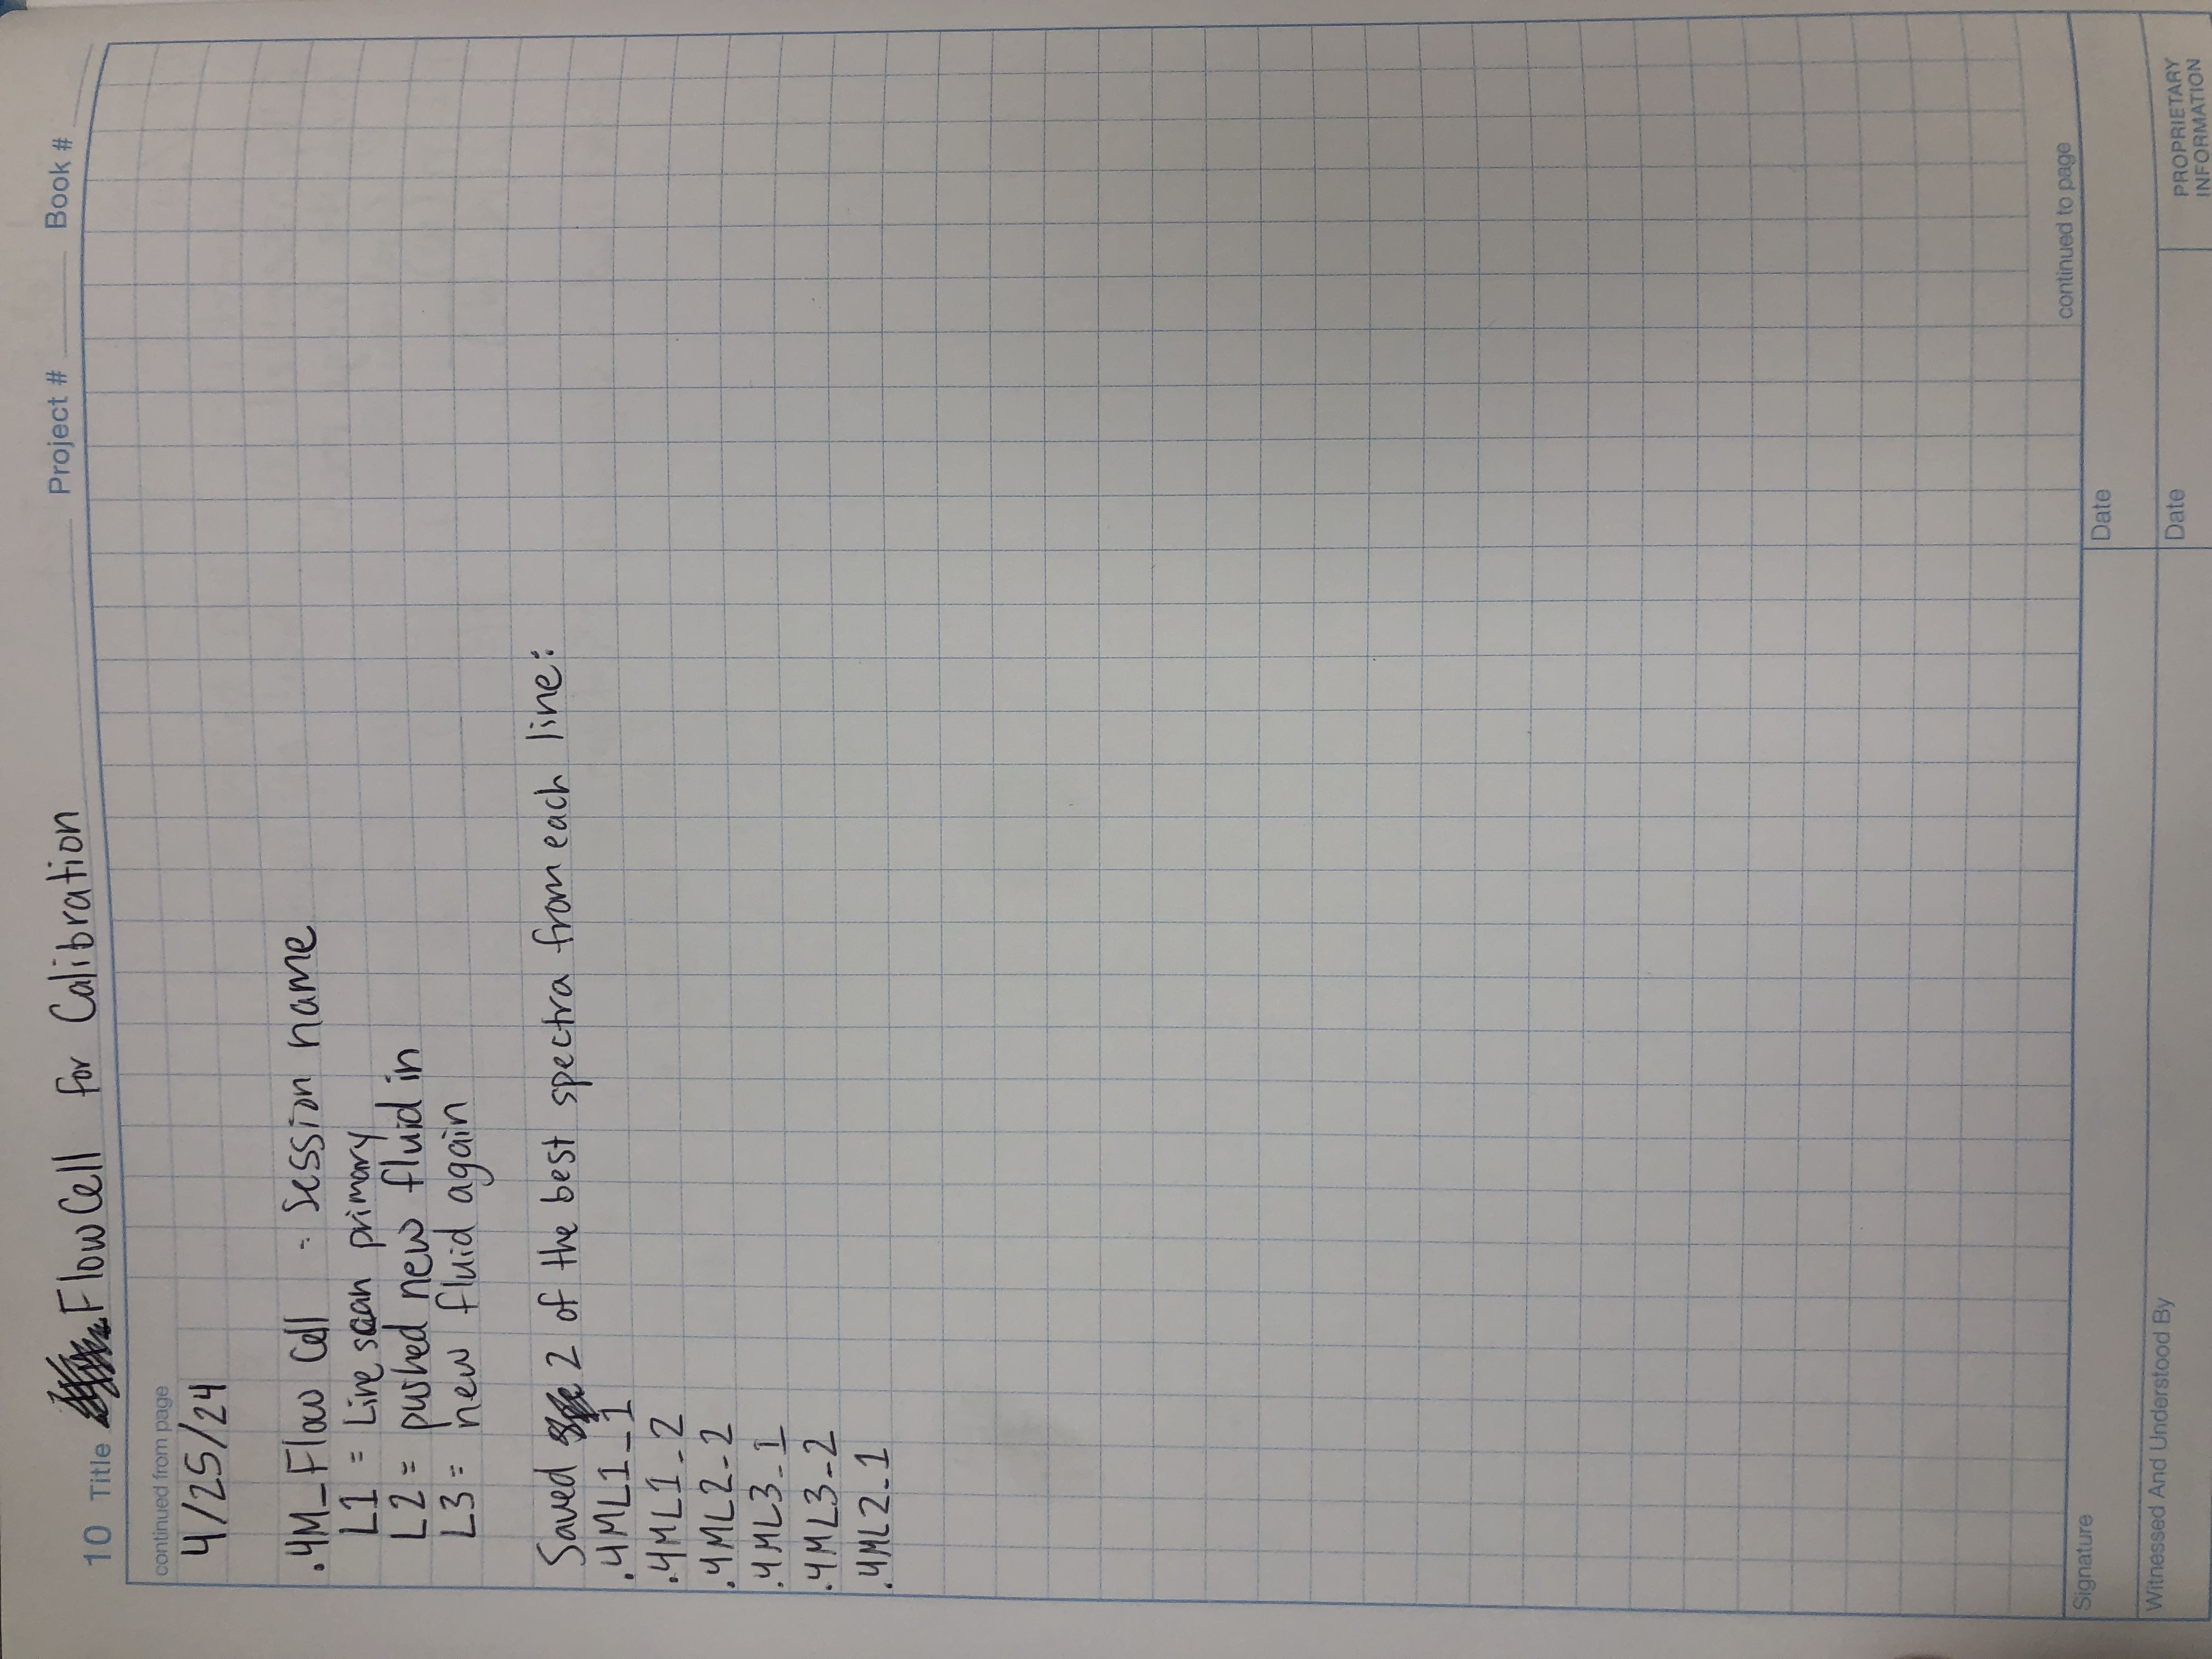 Project # Book #
10 Title Flow Cell for Calibration
continued from page
4/25/24
.4M_Flow Cell = Session name
L1 = Line scan primary
L2 = pushed new fluid in
L3 = new fluid again
Saved 2 of the best spectra from each line:
.4ML1_1
.4ML1_2
.4ML2_2
.4ML3_1
.4ML3_2
.4ML2_1
continued to page
Signature
Date
Witnessed And Understood By
Date
PROPRIETARY
INFORMATION